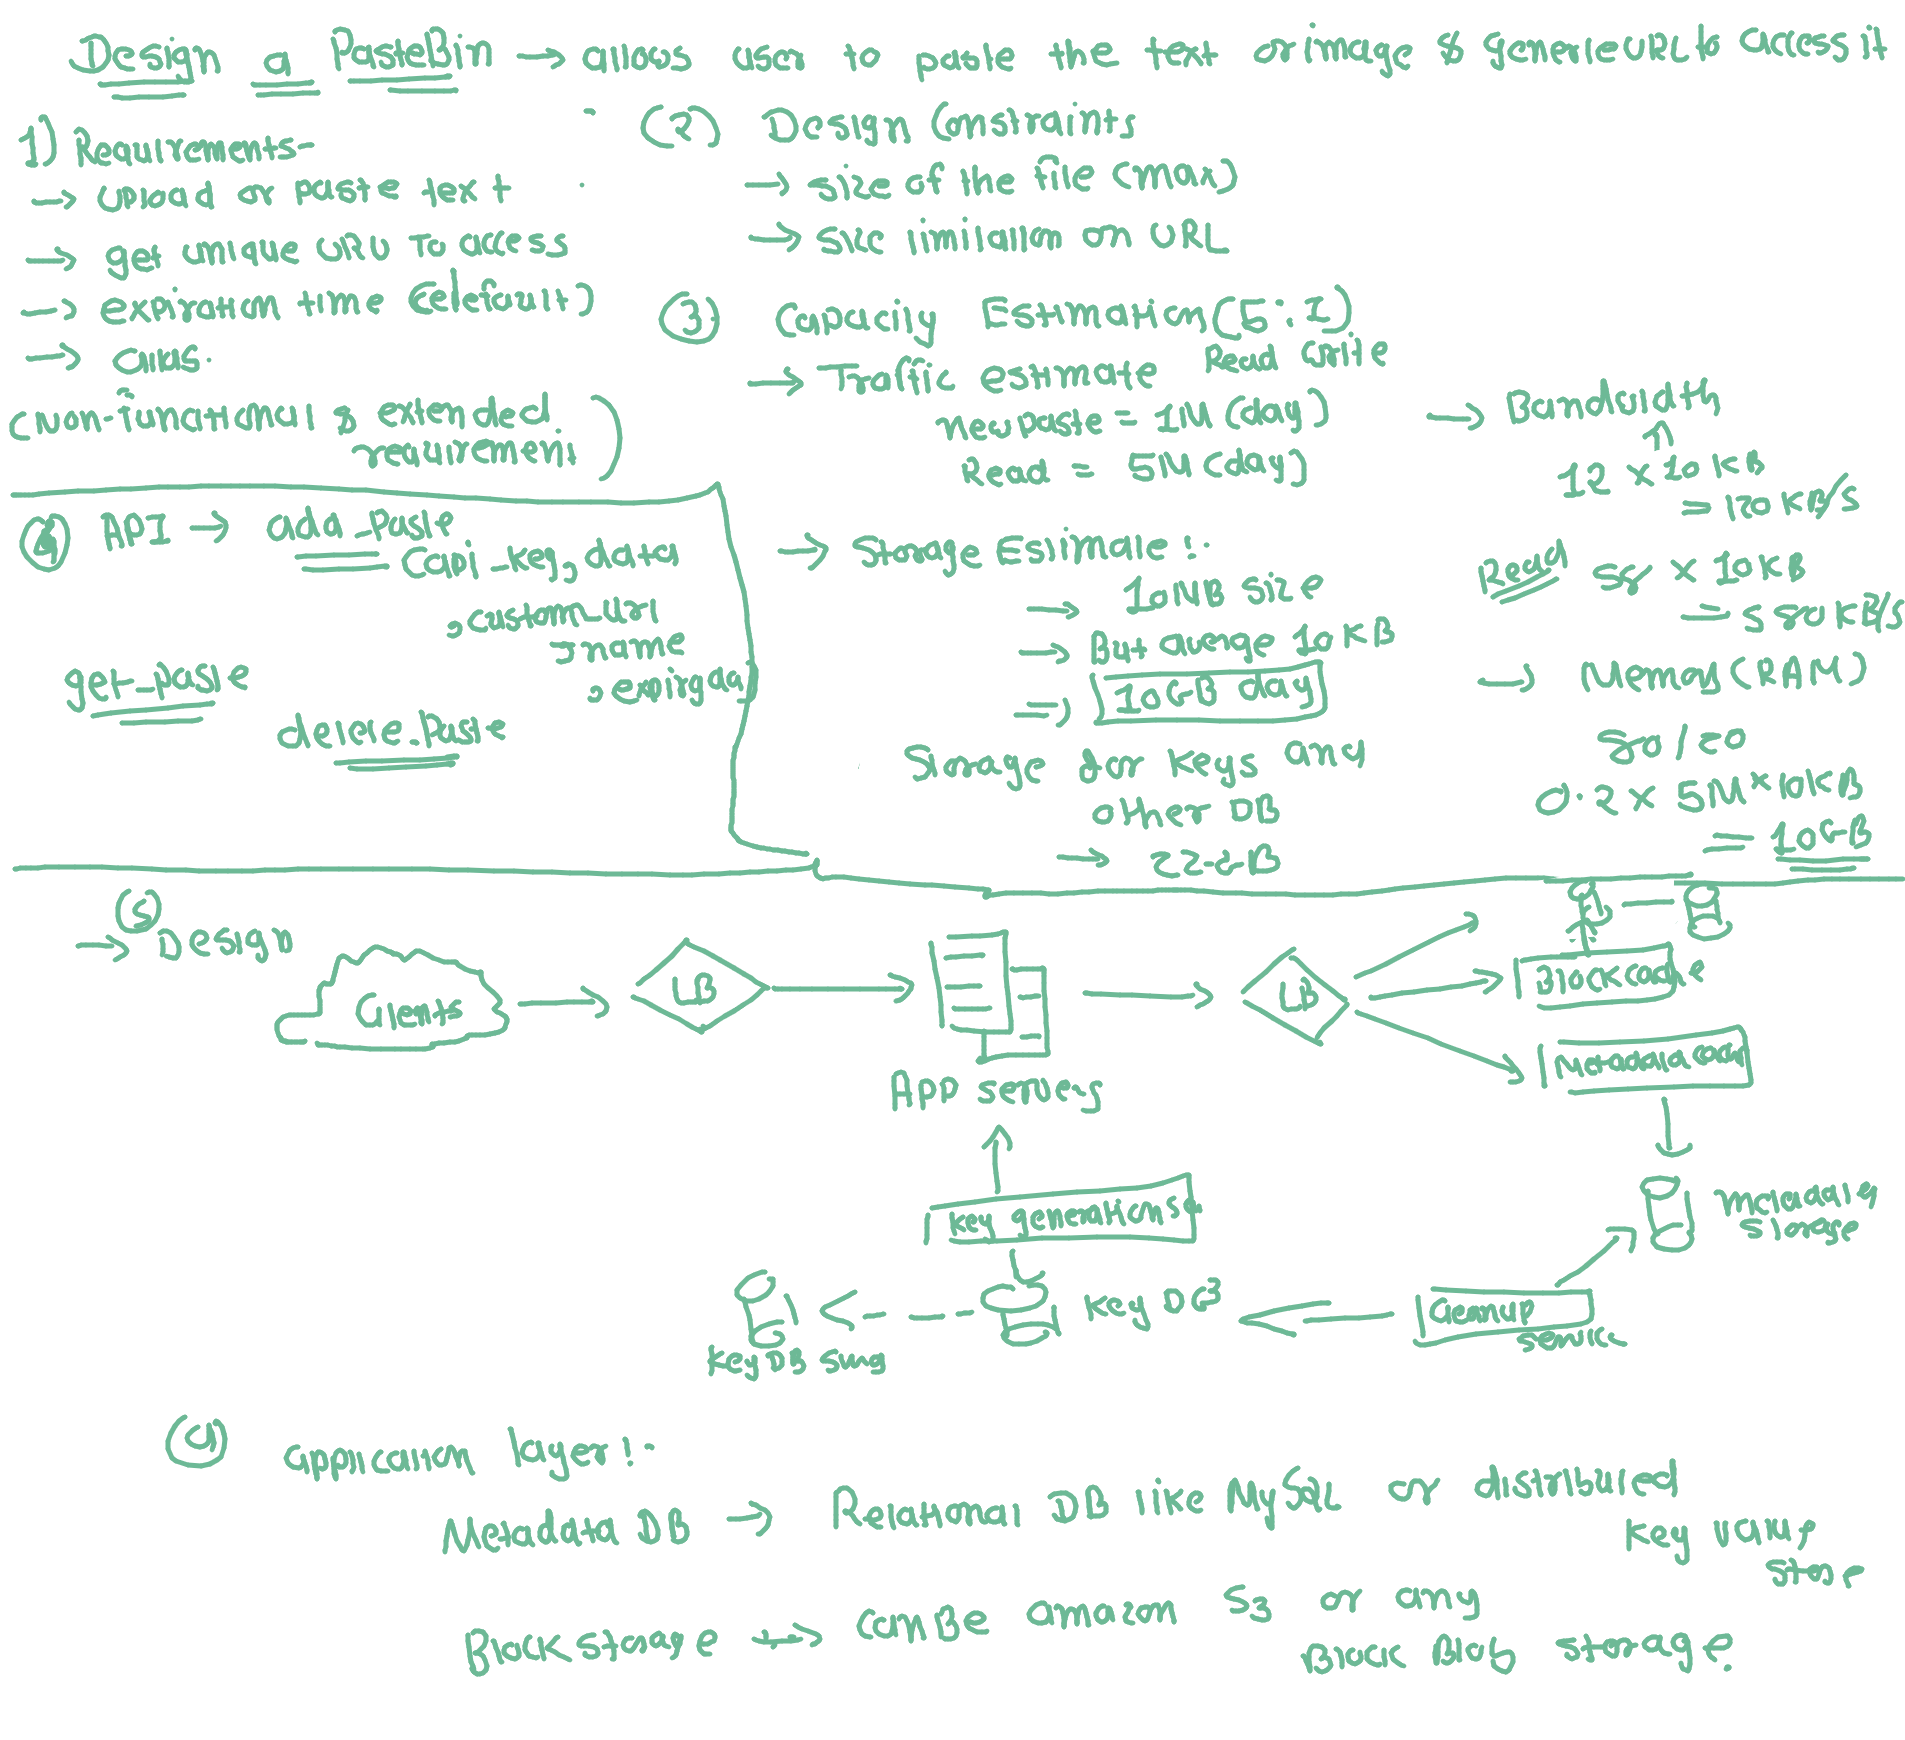 Design a PasteBin → allows user to paste the text or image & generte URL to access it
1) Requirements-
→ upload or paste text
→ get unique URL to access
→ expiration time (default)
→
(Non-functional & extended
requirement)
(2) Design Constraints
→ size of the file (max)
→ size limitation on URL
(3) Capacity Estimation (5:1)
Read Write
→ Traffic estimate
New paste = 1M (day)
Read = 5M (day)
→ Storage Estimate :-
→ 10MB size
→ But average 10KB
⇒ 10GB day
Storage for keys and
other DB
→ 22GB
→ Bandwidth
12 × 10 KB
= 120 KB/s
Read 58 × 10KB
= 580 KB/s
→ Memory (RAM)
80/20
0.2 × 5M × 10KB
= 10GB
(4) API → add_paste
(api_key, data
, custom_url
, name
, expiry da
get_paste
delete_paste
(5)
→ Design
Clients
LB
App servers
LB
Block cache
Metadata cache
Metadata
storage
Key generation se
Key DB
Key DB
Cleanup
service
(a) application layer :-
Metadata DB → Relational DB like MySQL or distributed
key value
store
Block storage → can Be amazon S3 or any
Block Blob storage.